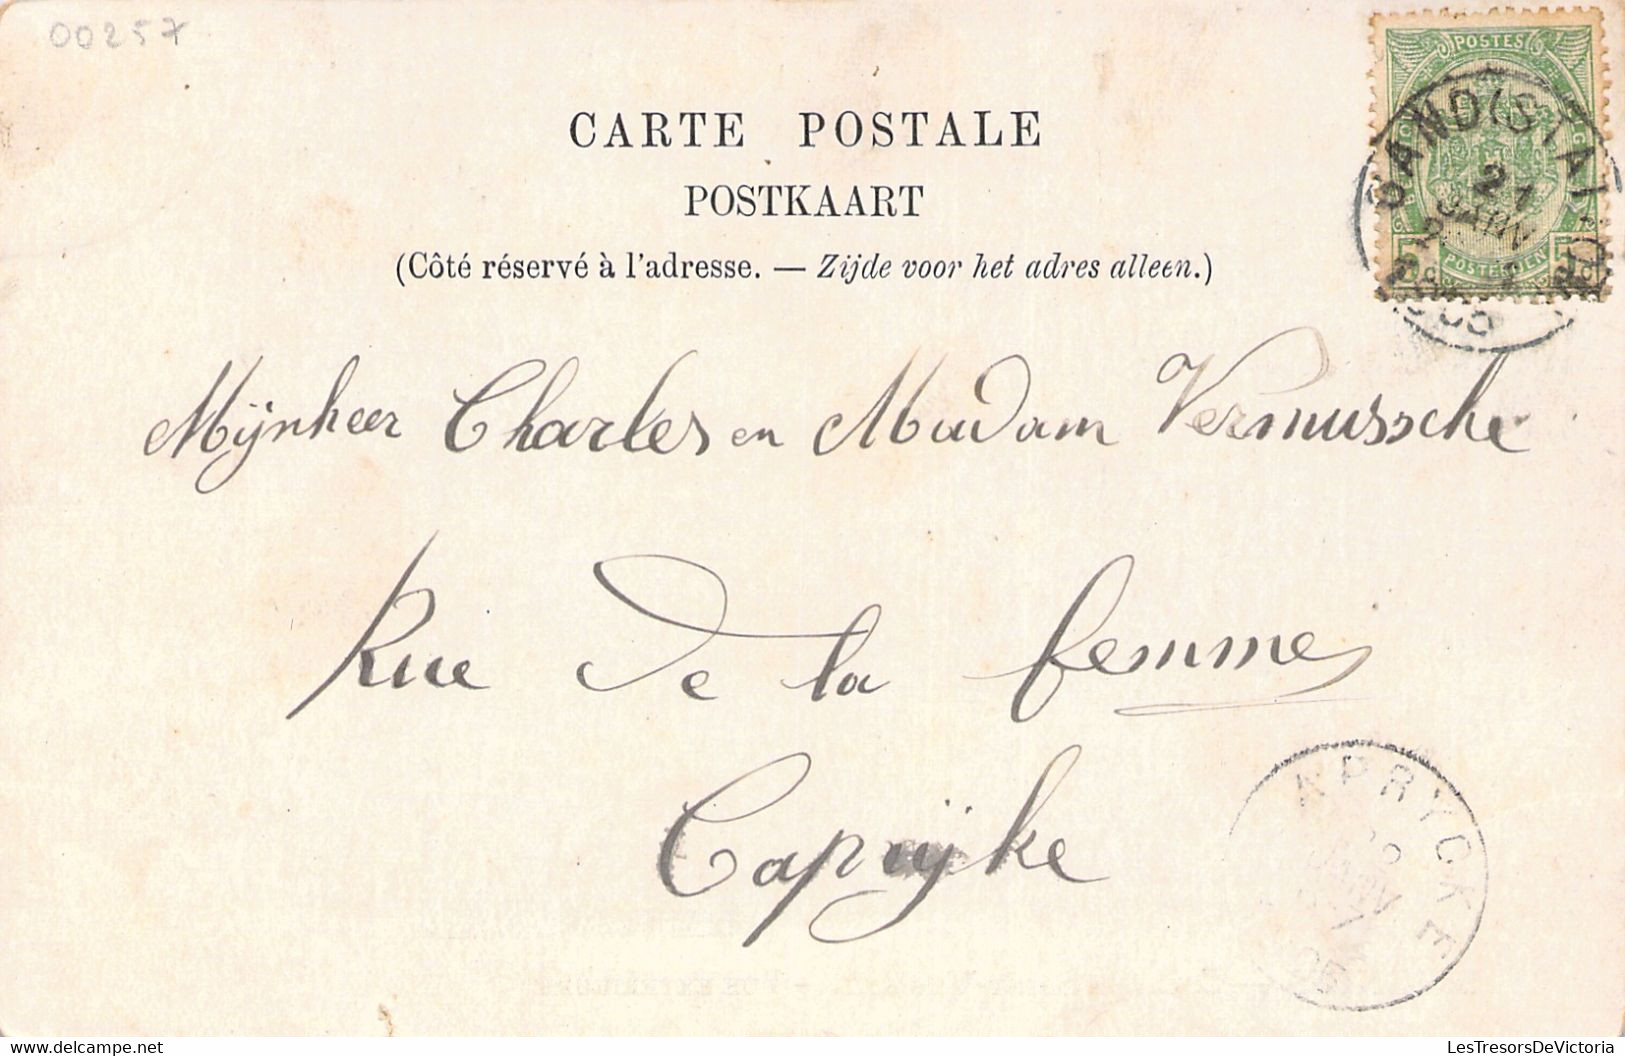 00257
CARTE POSTALE
POSTKAART
(Côté réservé à l'adresse. — Zijde voor het adres alleen.)
POSTES
POSTERIJEN
GAND (STATION)
21
JANV
Mijnheer Charles en Madam Vermussche
Rue de la femmes
Caprijke
APRYCKE
JANV
LesTresorsDeVictoria
LesTresorsDeVictoria.com